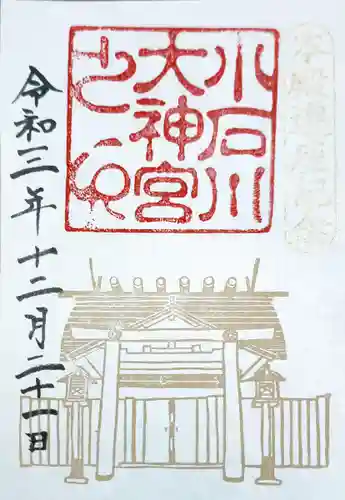 小石川
大神宮
令和三年十二月二十一日